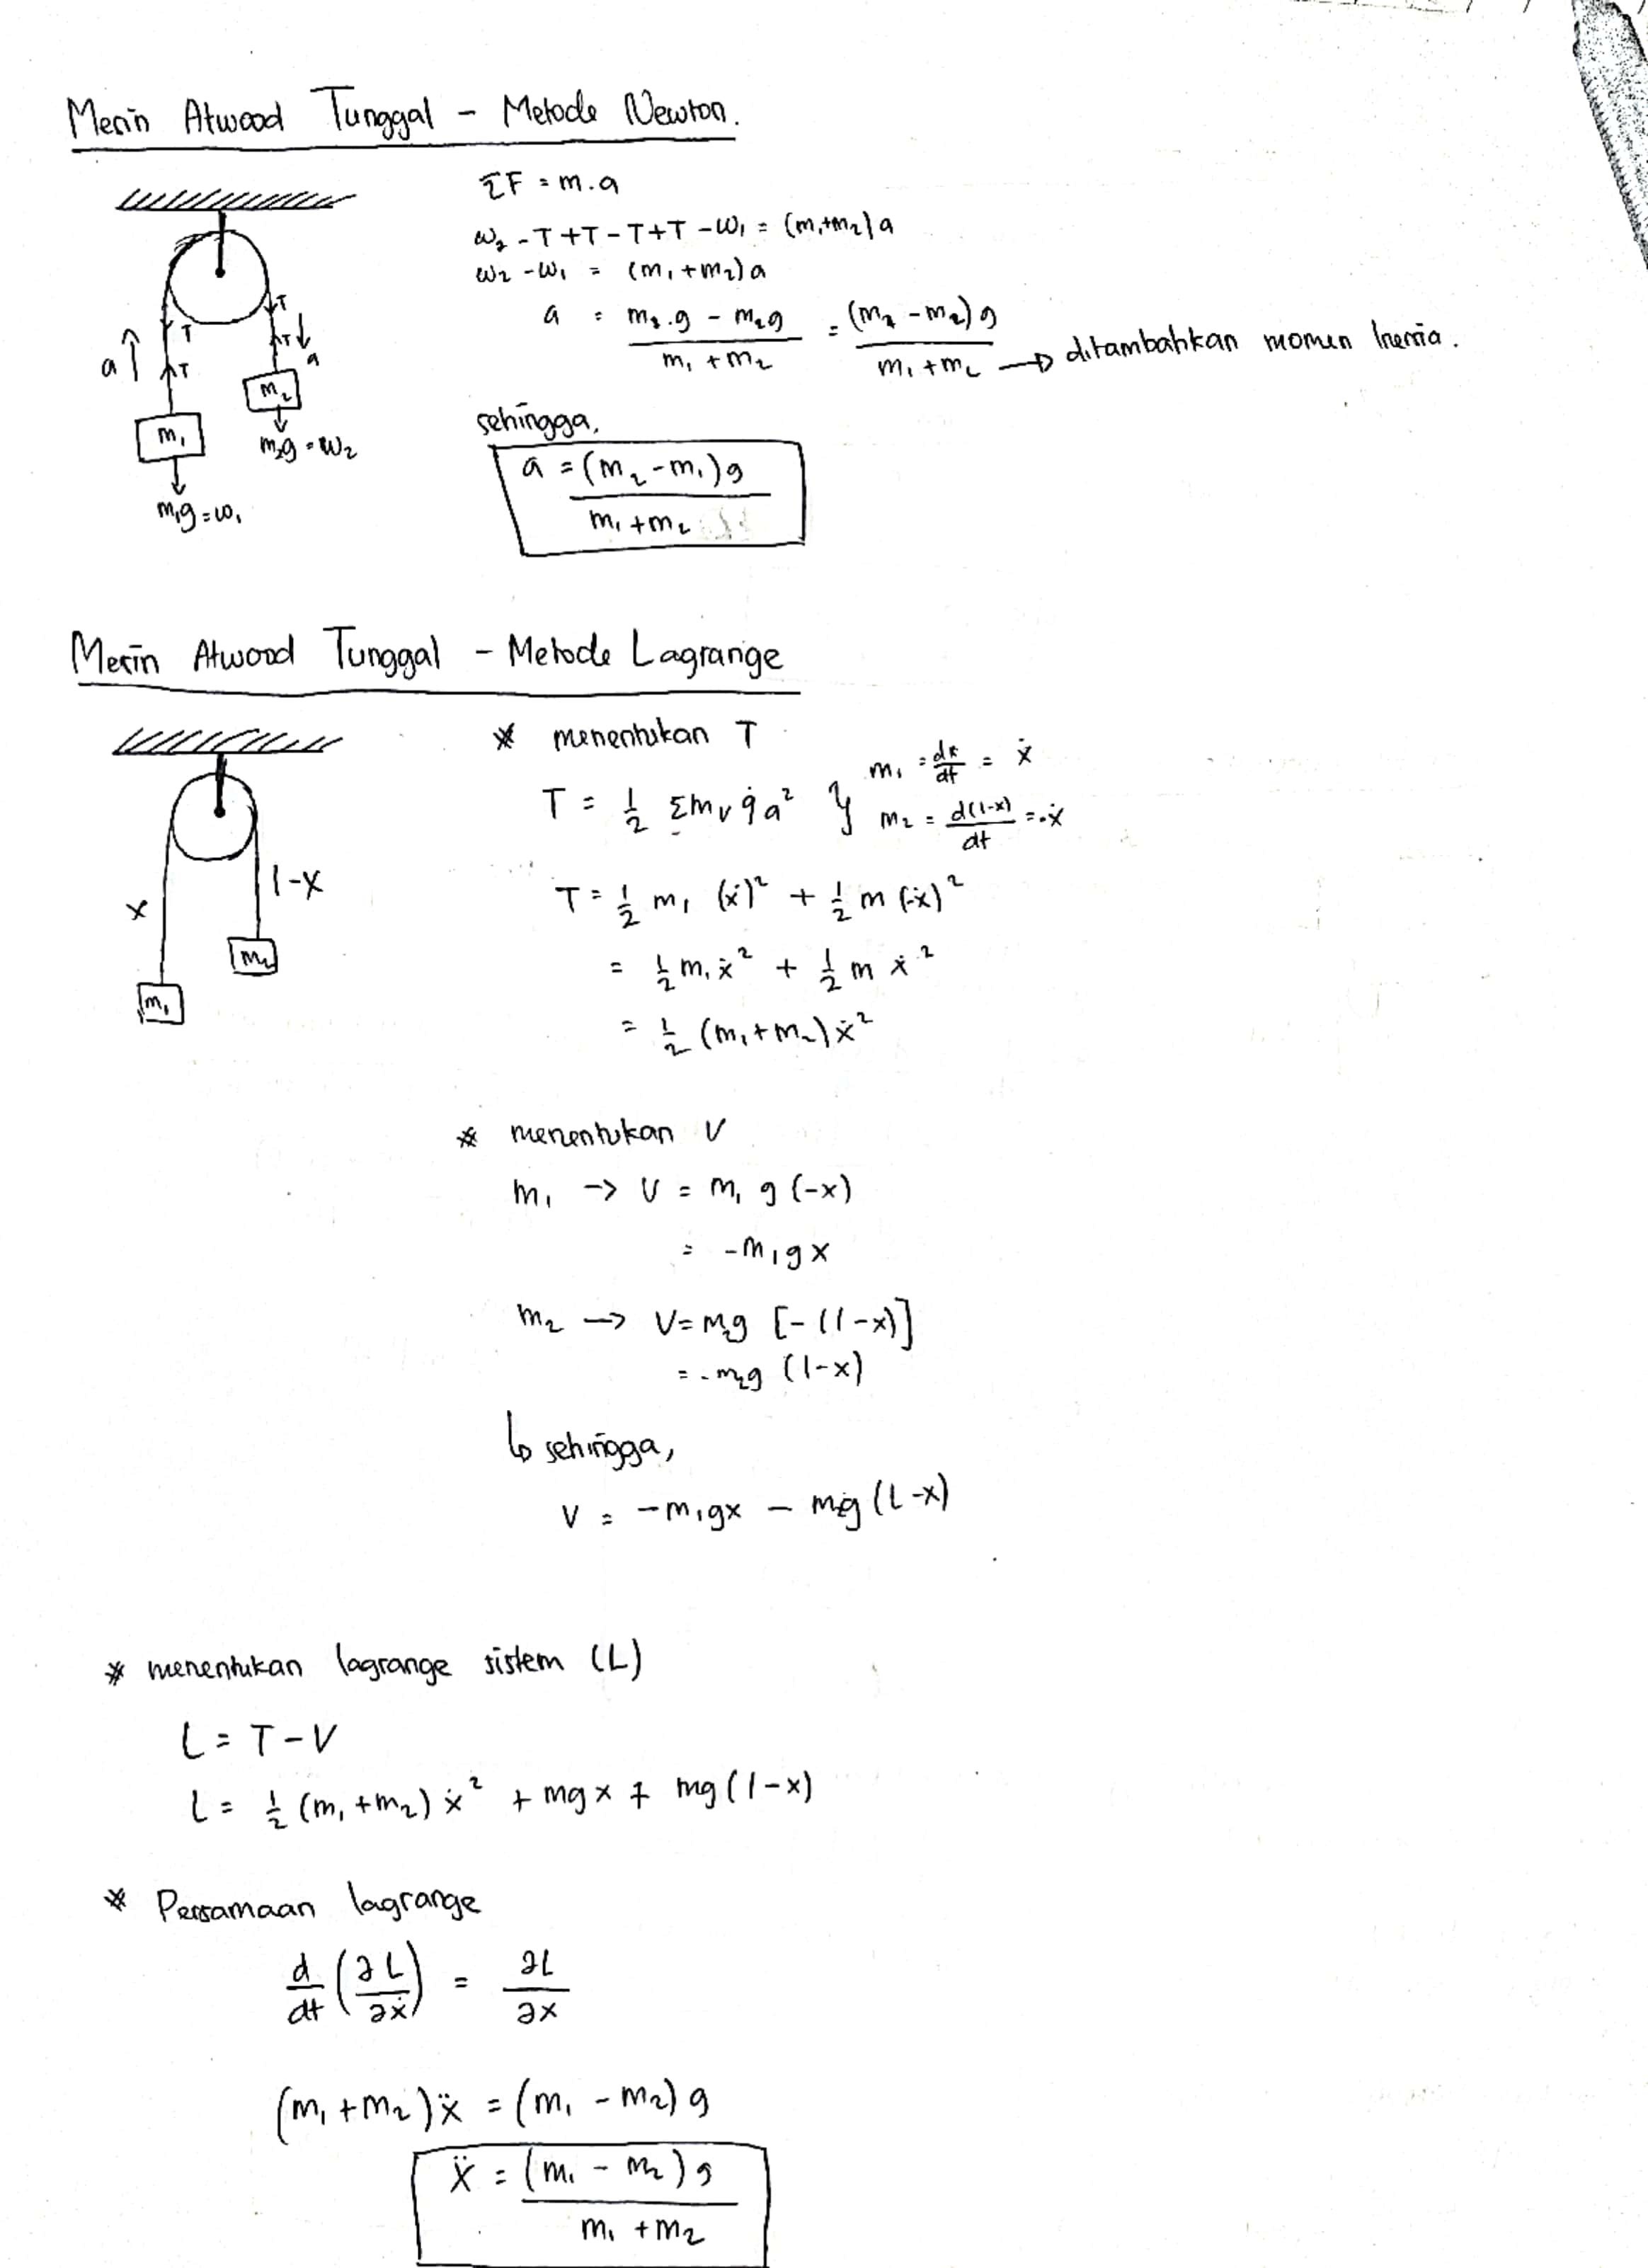 Mesin Atwood Tunggal - Metode Newton.
ΣF = m.a
w₂ - T + T - T + T - w₁ = (m₁+m₂)a
w₂ - w₁ = (m₁ + m₂) a
a = (m₂.g - m₂g)/(m₁ + m₂) = ((m₂ - m₂) g)/(m₁ + m₂) → ditambahkan momen Inersia.
a T T a
T T
m₂
m₁
m₂g = w₂
m₁g = w₁
sehingga,
a = ((m₂ - m₁) g)/(m₁ + m₂)
Mesin Atwood Tunggal - Metode Lagrange
* menentukan T
T = ½ Σmv q̇a² } m₁ = dx/dt = ẋ
m₂ = d(l-x)/dt = -ẋ
x
l-x
m₂
m₁
T = ½ m₁ (ẋ)² + ½ m (-ẋ)²
= ½ m₁ ẋ² + ½ m ẋ²
= ½ (m₁ + m₂) ẋ²
* menentukan V
m₁ → V = m₁ g (-x)
= -m₁gx
m₂ → V = m₂g [-(l-x)]
= -m₂g (l-x)
↳ sehingga,
V = -m₁gx - m₂g (L-x)
* menentukan lagrange sistem (L)
L = T - V
L = ½ (m₁ + m₂) ẋ² + mgx + mg (l-x)
* Persamaan lagrange
d/dt (∂L/∂ẋ) = ∂L/∂x
(m₁ + m₂) ẍ = (m₁ - m₂) g
ẍ = ((m₁ - m₂) g)/(m₁ + m₂)